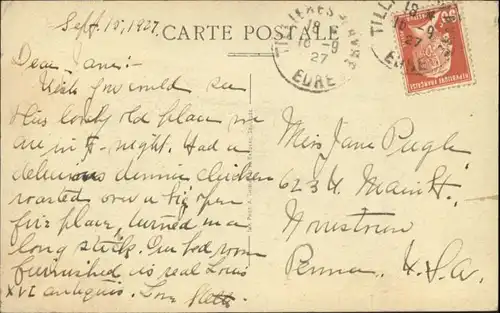 Sept. 15, 1927.
CARTE POSTALE
Dear Jane:-
Wish you could see
this lovely old place we
are in to-night. Had a
delicious dinner chicken
roasted over a big open
fire place, turned on a
long stick. Our bed room
furnished is real Louis
XVI antiques. Love
Miss Jane Pugh
623 W. Main St.
Norristown
Penna. U.S.A.
TILLIERES S. AVRE
18
16-9
27
EURE
TILL
18
16-9
27
EURE
REPUBLIQUE FRANÇAISE